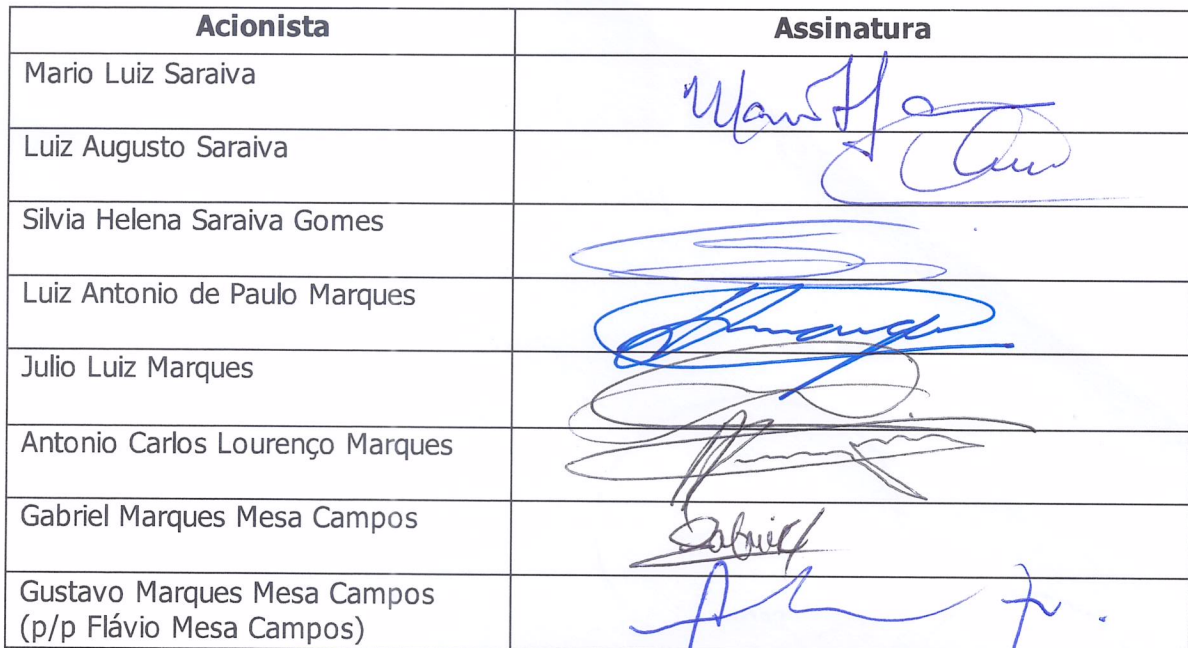 Acionista Assinatura
Mario Luiz Saraiva
Luiz Augusto Saraiva
Silvia Helena Saraiva Gomes
Luiz Antonio de Paulo Marques
Julio Luiz Marques
Antonio Carlos Lourenço Marques
Gabriel Marques Mesa Campos Gabriel
Gustavo Marques Mesa Campos
(p/p Flávio Mesa Campos)